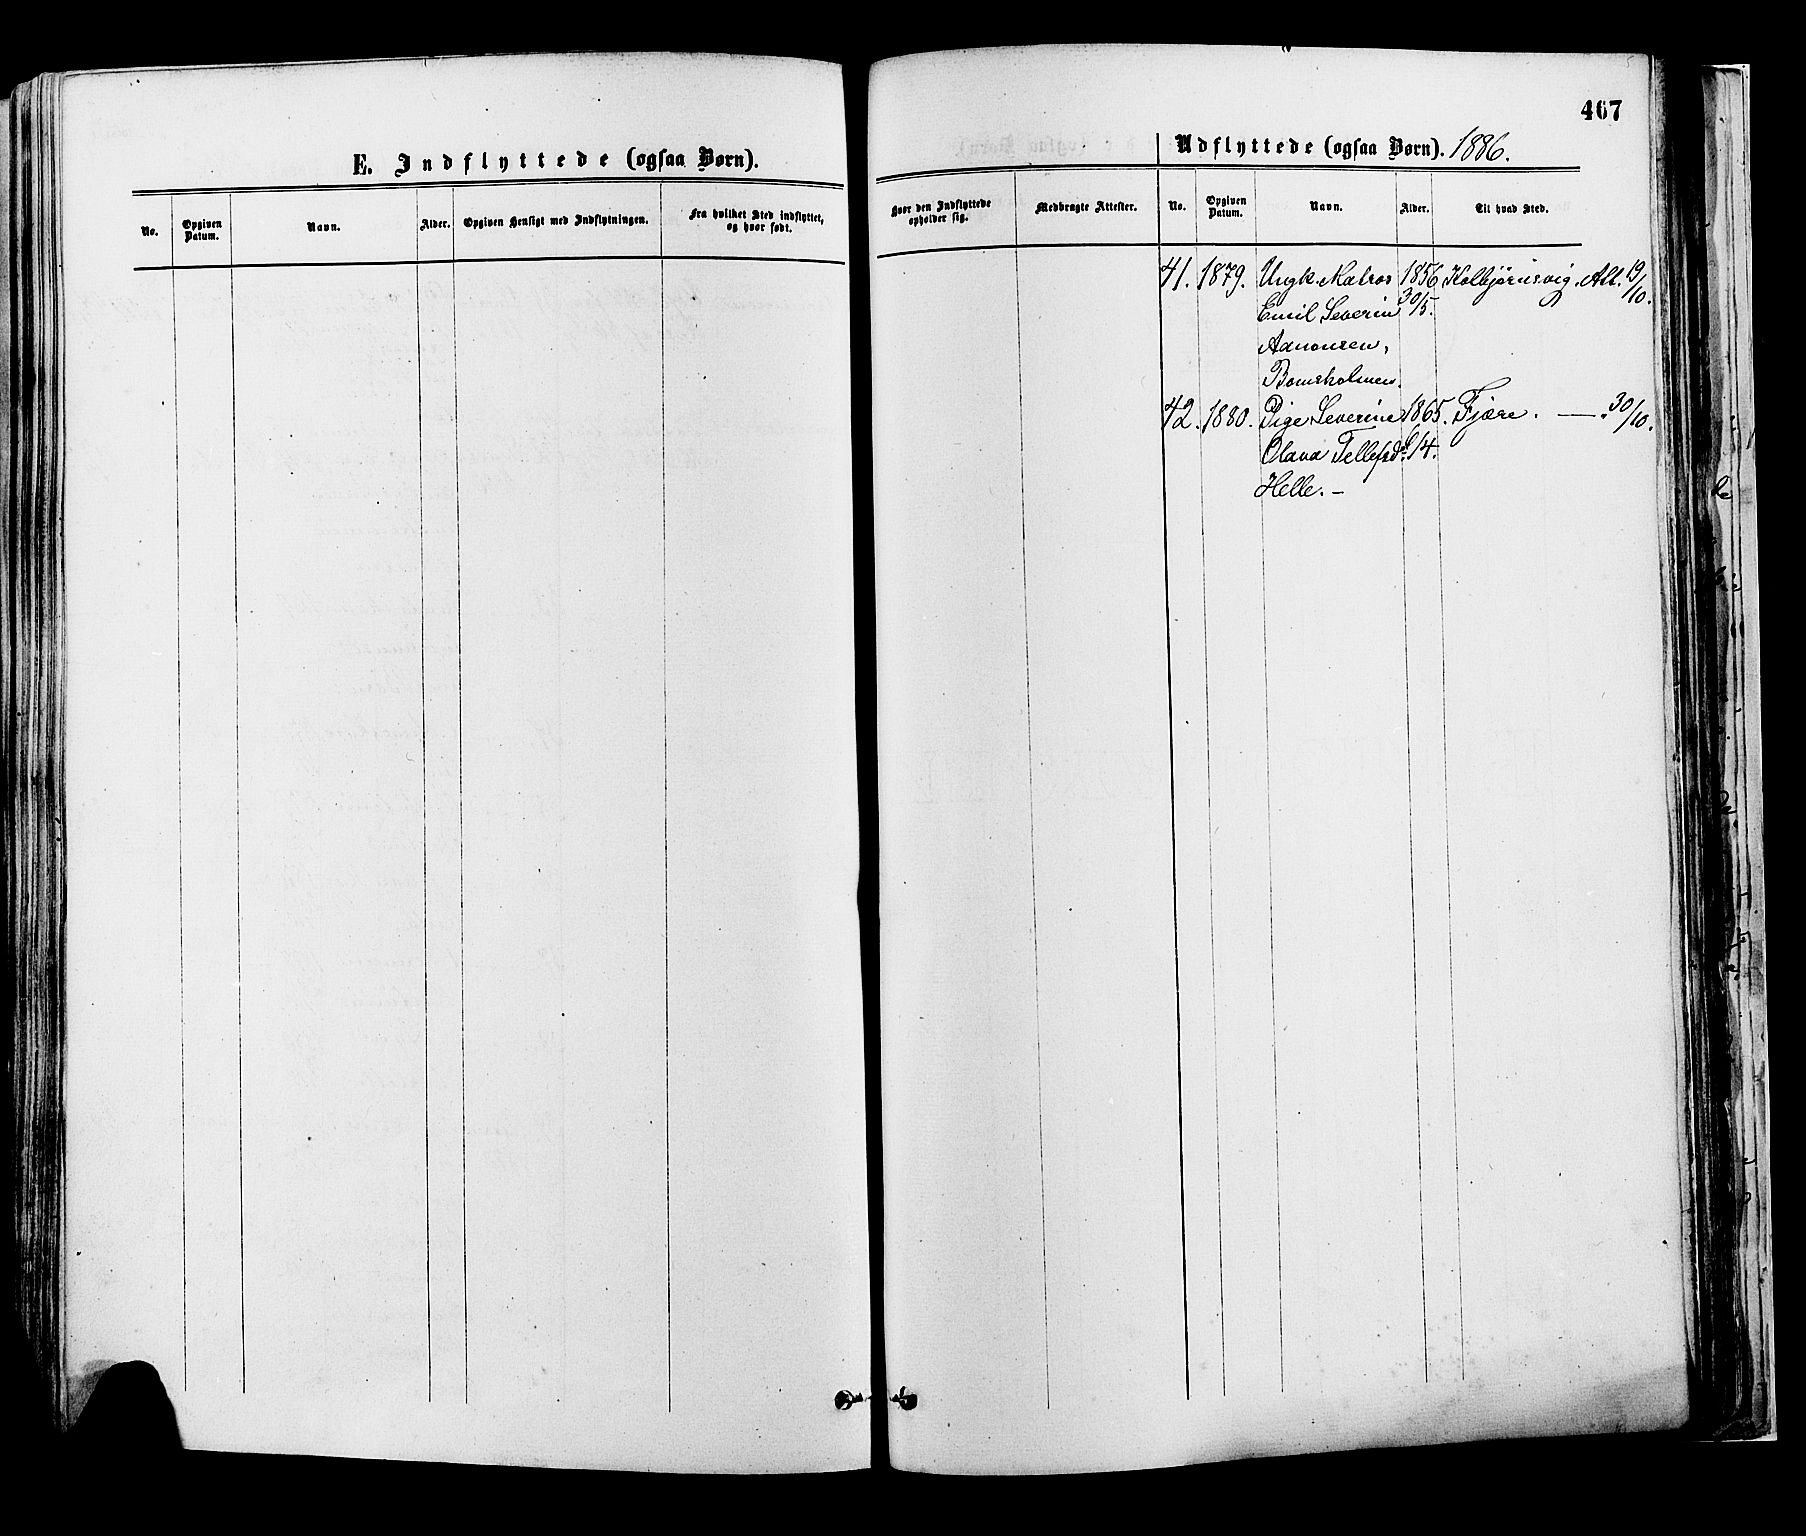 E. Indflyttede (ogsaa Børn).
No.
Opgiven Datum.
Navn.
Alder.
Opgiven Hensigt med Indflytningen.
Fra hvilket Sted indflyttet, og hvor født.
467
Udflyttede (ogsaa Børn). 1886.
Hvor den Indflyttede opholder sig.
Medbragte Attester.
No.
Opgiven Datum.
Navn.
Alder.
Til hvad Sted.
41. 1879. Ungk. Matros 1856 Kolbjørnsvig. Att. 19/10.
Emil Severin 30/5.
Aanonsen,
Bomsholmen.
42. 1880. Pige Severine 1865. Fjære. — . 30/10.
Olava Tellefsd. /4.
Helle. –